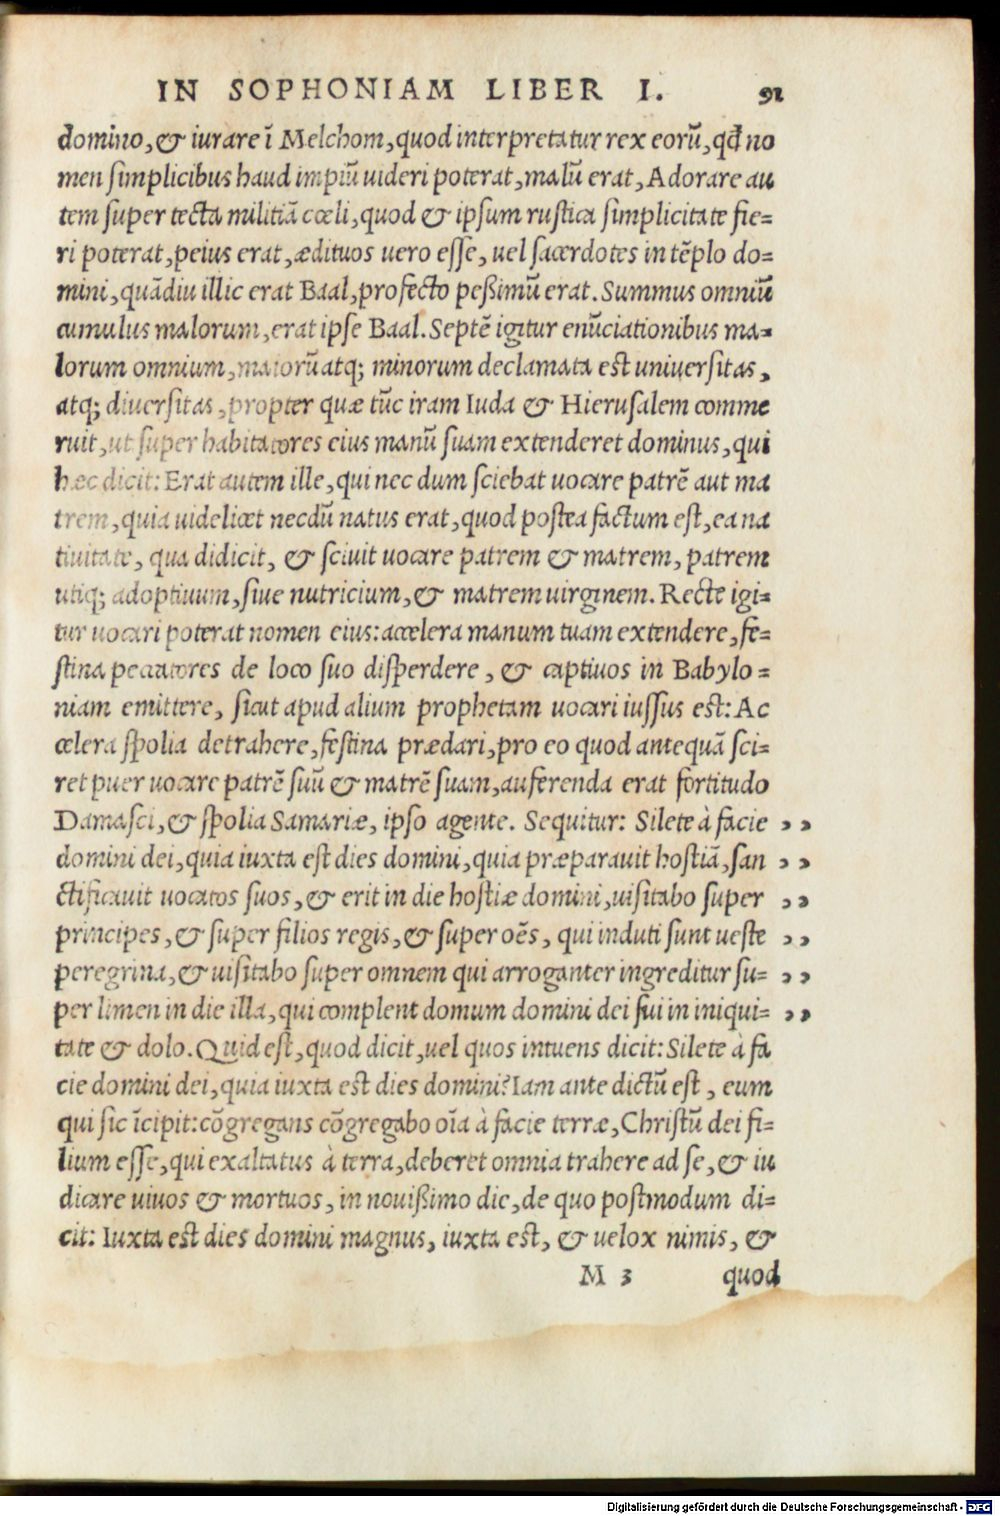 IN SOPHONIAM LIBER I. 91
domino, & iurare ī Melchom, quod interpretatur rex eorū, qđ no
men simplicibus haud impiū uideri poterat, malū erat, Adorare au
tem super tecta militiā cœli, quod & ipsum rustica simplicitate fie-
ri poterat, peius erat, ædituos uero esse, uel sacerdotes in tēplo do-
mini, quādiu illic erat Baal, profecto peßimū erat. Summus omniū
cumulus malorum, erat ipse Baal. Septē igitur enūciationibus ma-
lorum omnium, maiorū atq; minorum declamata est uniuersitas,
atq; diuersitas, propter quæ tūc iram Iuda & Hierusalem comme
ruit, ut super habitatores eius manū suam extenderet dominus, qui
hæc dicit: Erat autem ille, qui nec dum sciebat uocare patrē aut ma
trem, quia uidelicet necdū natus erat, quod postea factum est, ea na
tiuitate, qua didicit, & sciuit uocare patrem & matrem, patrem
utiq; adoptiuum, siue nutricium, & matrem uirginem. Recte igi-
tur uocari poterat nomen eius: accelera manum tuam extendere, fe-
stina peccatores de loco suo disperdere, & captiuos in Babylo-
niam emittere, sicut apud alium prophetam uocari iussus est: Ac
celera spolia detrahere, festina prædari, pro eo quod antequā sci-
ret puer uocare patrē suū & matrē suam, auferenda erat fortitudo
Damasci, & spolia Samariæ, ipso agente. Sequitur: Silete à facie ,,
domini dei, quia iuxta est dies domini, quia præparauit hostiā, san ,,
ctificauit uocatos suos, & erit in die hostiæ domini, uisitabo super ,,
principes, & super filios regis, & super oēs, qui induti sunt ueste ,,
peregrina, & uisitabo super omnem qui arroganter ingreditur su- ,,
per limen in die illa, qui complent domum domini dei sui in iniqui- ,,
tate & dolo. Quid est, quod dicit, uel quos intuens dicit: Silete à fa
cie domini dei, quia iuxta est dies domini? Iam ante dictū est, eum
qui sic īcipit: cōgregans cōgregabo oīa à facie terræ, Christū dei fi-
lium esse, qui exaltatus à terra, deberet omnia trahere ad se, & iu
dicare uiuos & mortuos, in nouißimo die, de quo postmodum di-
cit: Iuxta est dies domini magnus, iuxta est, & uelox nimis, &
M 3 quod
Digitalisierung gefördert durch die Deutsche Forschungsgemeinschaft - DFG